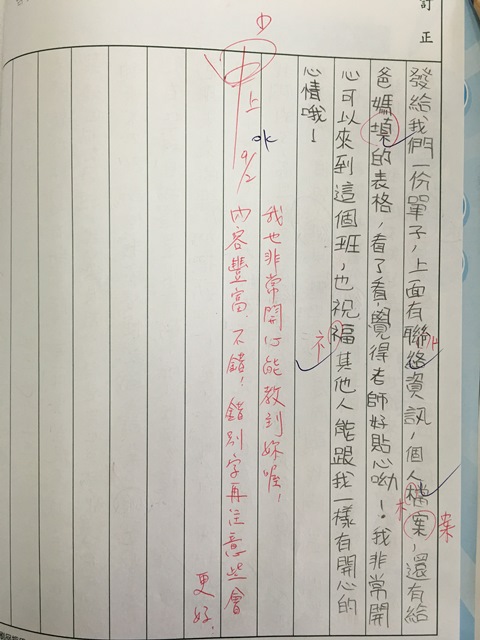 訂正
發給我們一份單子，上面有聯絡資訊，個人檔案，還有給
爸媽填的表格，看了看，覺得老師好貼心呦！我非常開
心可以來到這個班，也祝福其他人能跟我一樣有開心的
心情哦！
木
案
礻
ok
我也非常開心能教到妳喔！
內容豐富，不錯！錯別字再注意些會
更好．
中
上
9/2